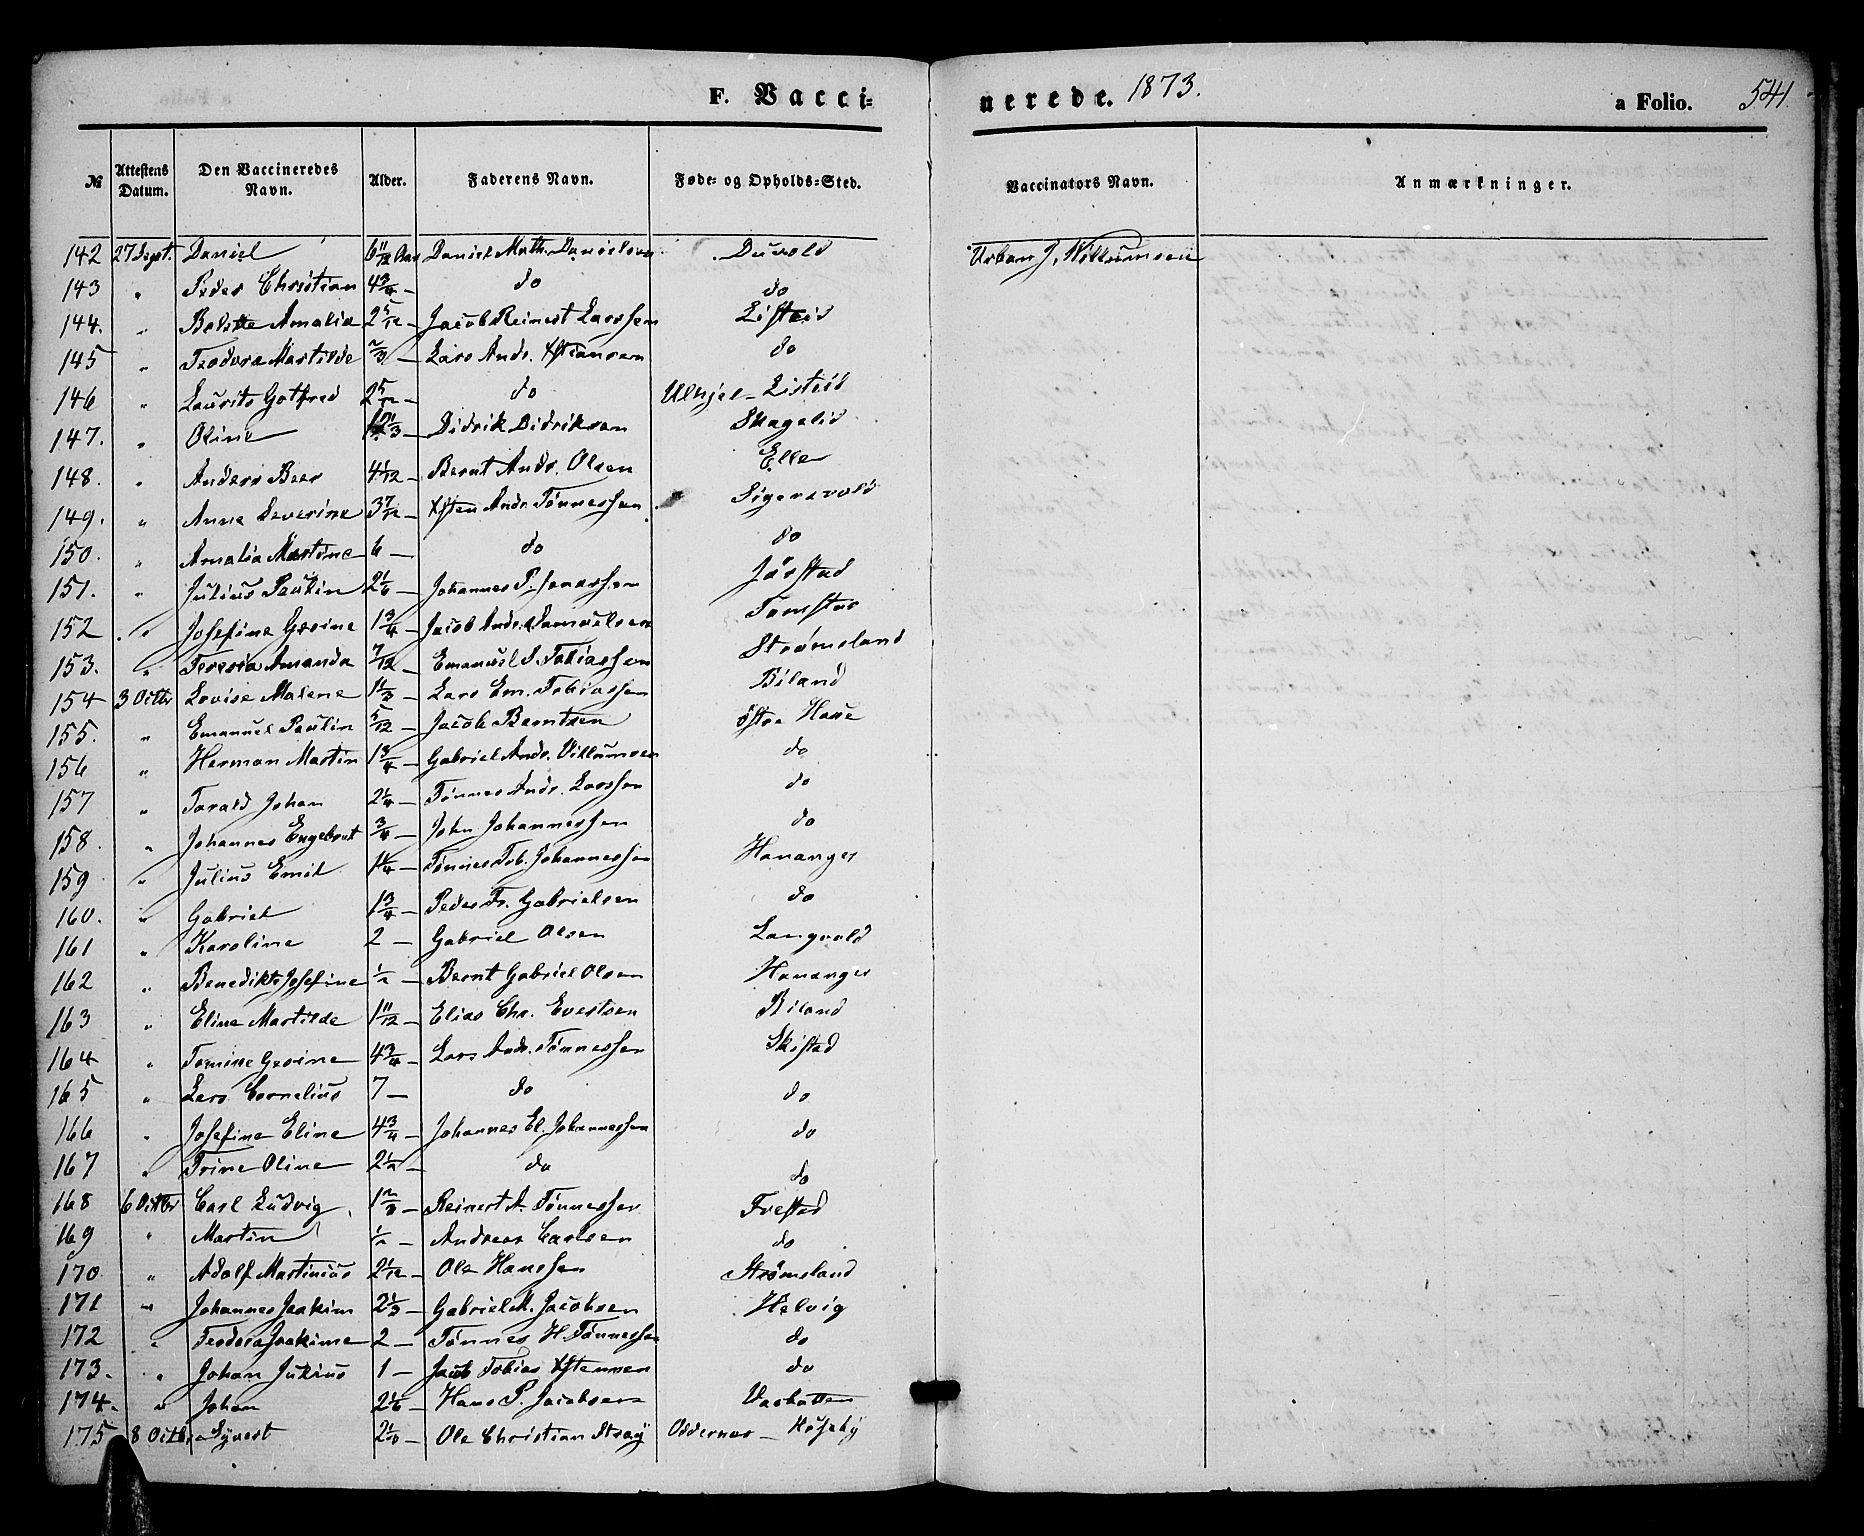 F. Vacci-
nerede. 1873.
a Folio. 541.
№ Attestens Datum. Den Vaccineredes Navn. Alder. Faderens Navn. Føde- og Opholds-Sted. Vaccinators Navn. Anmærkninger.
142 27 Sept. Daniel 6 11/12 Aar Daniel Math. Danielsen Duvold Urban J. Willumsen
143 " Peder Christian 4 3/4 — do do
144. " Belette Amalia 2 5/12 — Jacob Reinert Larssen Listeid
145 " Teodora Martilde 2/3 — Lars Andr. Xstiansen do
146 " Laurits Gotfred 2 5/12 — do Ulhjel - Listeid
147. " Oline 1/3 — Didrik Didriksen Skagelid
148. " Anders Beer 4 1/12 — Bernt Andr. Olsen Eller
149. " Anne Severine 3 7/12 — Xsten Andr. Tönnessen. Sigersvold
150. " Amalia Martine 6 — do do
151. " Julius Paulin 2 1/6 — Johannes P. Jonassen Jörstad
152 " Josefine Gesine 1 3/4 — Jacob Andr. Samuelsen Tomstad
153. " Teresia Amanda 7/12 — Emanuel S. Tobiassen Strømsland
154 3 Octbr Lovise Malene 1 1/3 — Lars Em. Tobiassen Biland
155. " Emanuel Paulin 5/12 — Jacob Berntsen östre Haue
156 " Herman Martin 1 3/4 — Gabriel Andr. Villumsen do
157 " Tarald Johan 2 1/4 — Tönnes Andr. Larssen do
158. " Johannes Engebret 3/4 — John Johannessen do
159 " Julius Emil 1 1/4 — Tönnes Tob. Johannessen Hananger
160. " Gabriel 1 3/4 — Peder Fr. Gabrielsen do
161 " Karoline 2 — Gabriel Olsen Langvold
162 " Benedikte Josefine 1/2 — Bernt Gabriel Olsen Hananger
163 " Eline Martilde 1 11/12 — Elias Chr. Evertsen Biland
164 " Tomine Gesine 4 3/4 — Lars Andr. Tönnessen Skistad
165 " Lars Cornelius 7 — do do
166 " Josefine Eline 4 3/4 — Johannes El. Johannessen do
167 " Trine Oline 2 1/2 — do do
168 6 Octbr Carl Ludvig 1 2/3 — Reinert A. Tönnessen Frestad
169 " Martin 1/2 — Andreas Carlsen do
170 " Adolf Martinius 2 1/12 — Ole Hanssen Strømsland
171 " Johannes Joakim 2 1/3 — Gabriel M. Jacobsen Helvig
172 " Teodora Joakime 2 — Tönnes H. Tönnessen do
173. " Johan Julius 1 — Jacob Tobias Xstensen do
174. " Johan 2 1/6 — Hans P. Jacobsen Vashatten
175 8 Octbr Syvert 2 1/3 — Ole Christian Strøy Oddernes - Huseby